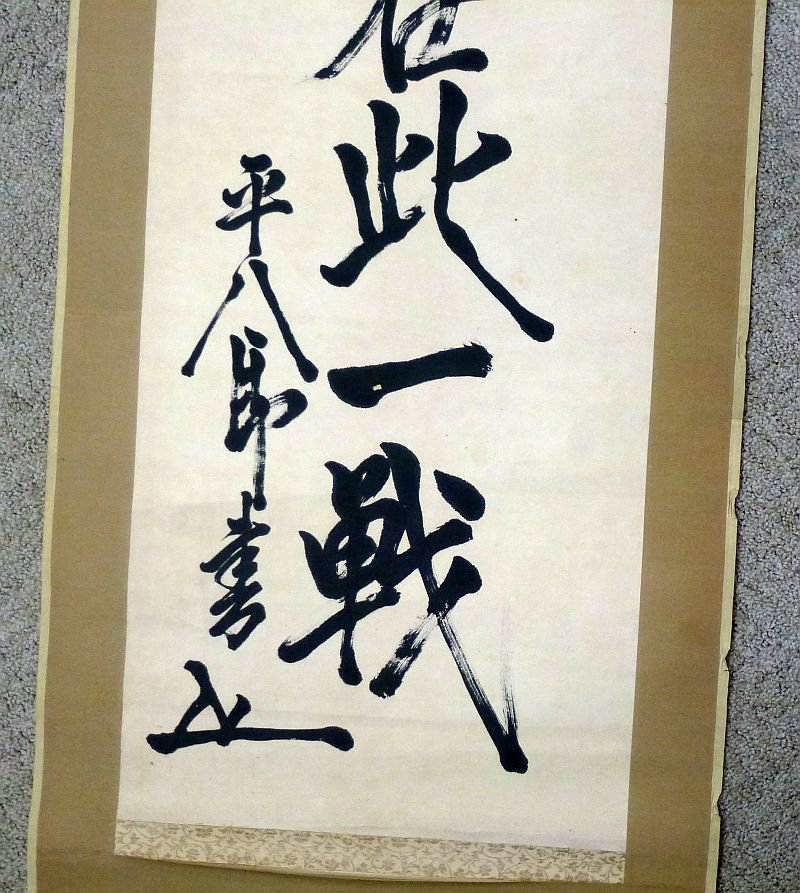 在此一戰
平八郎書之